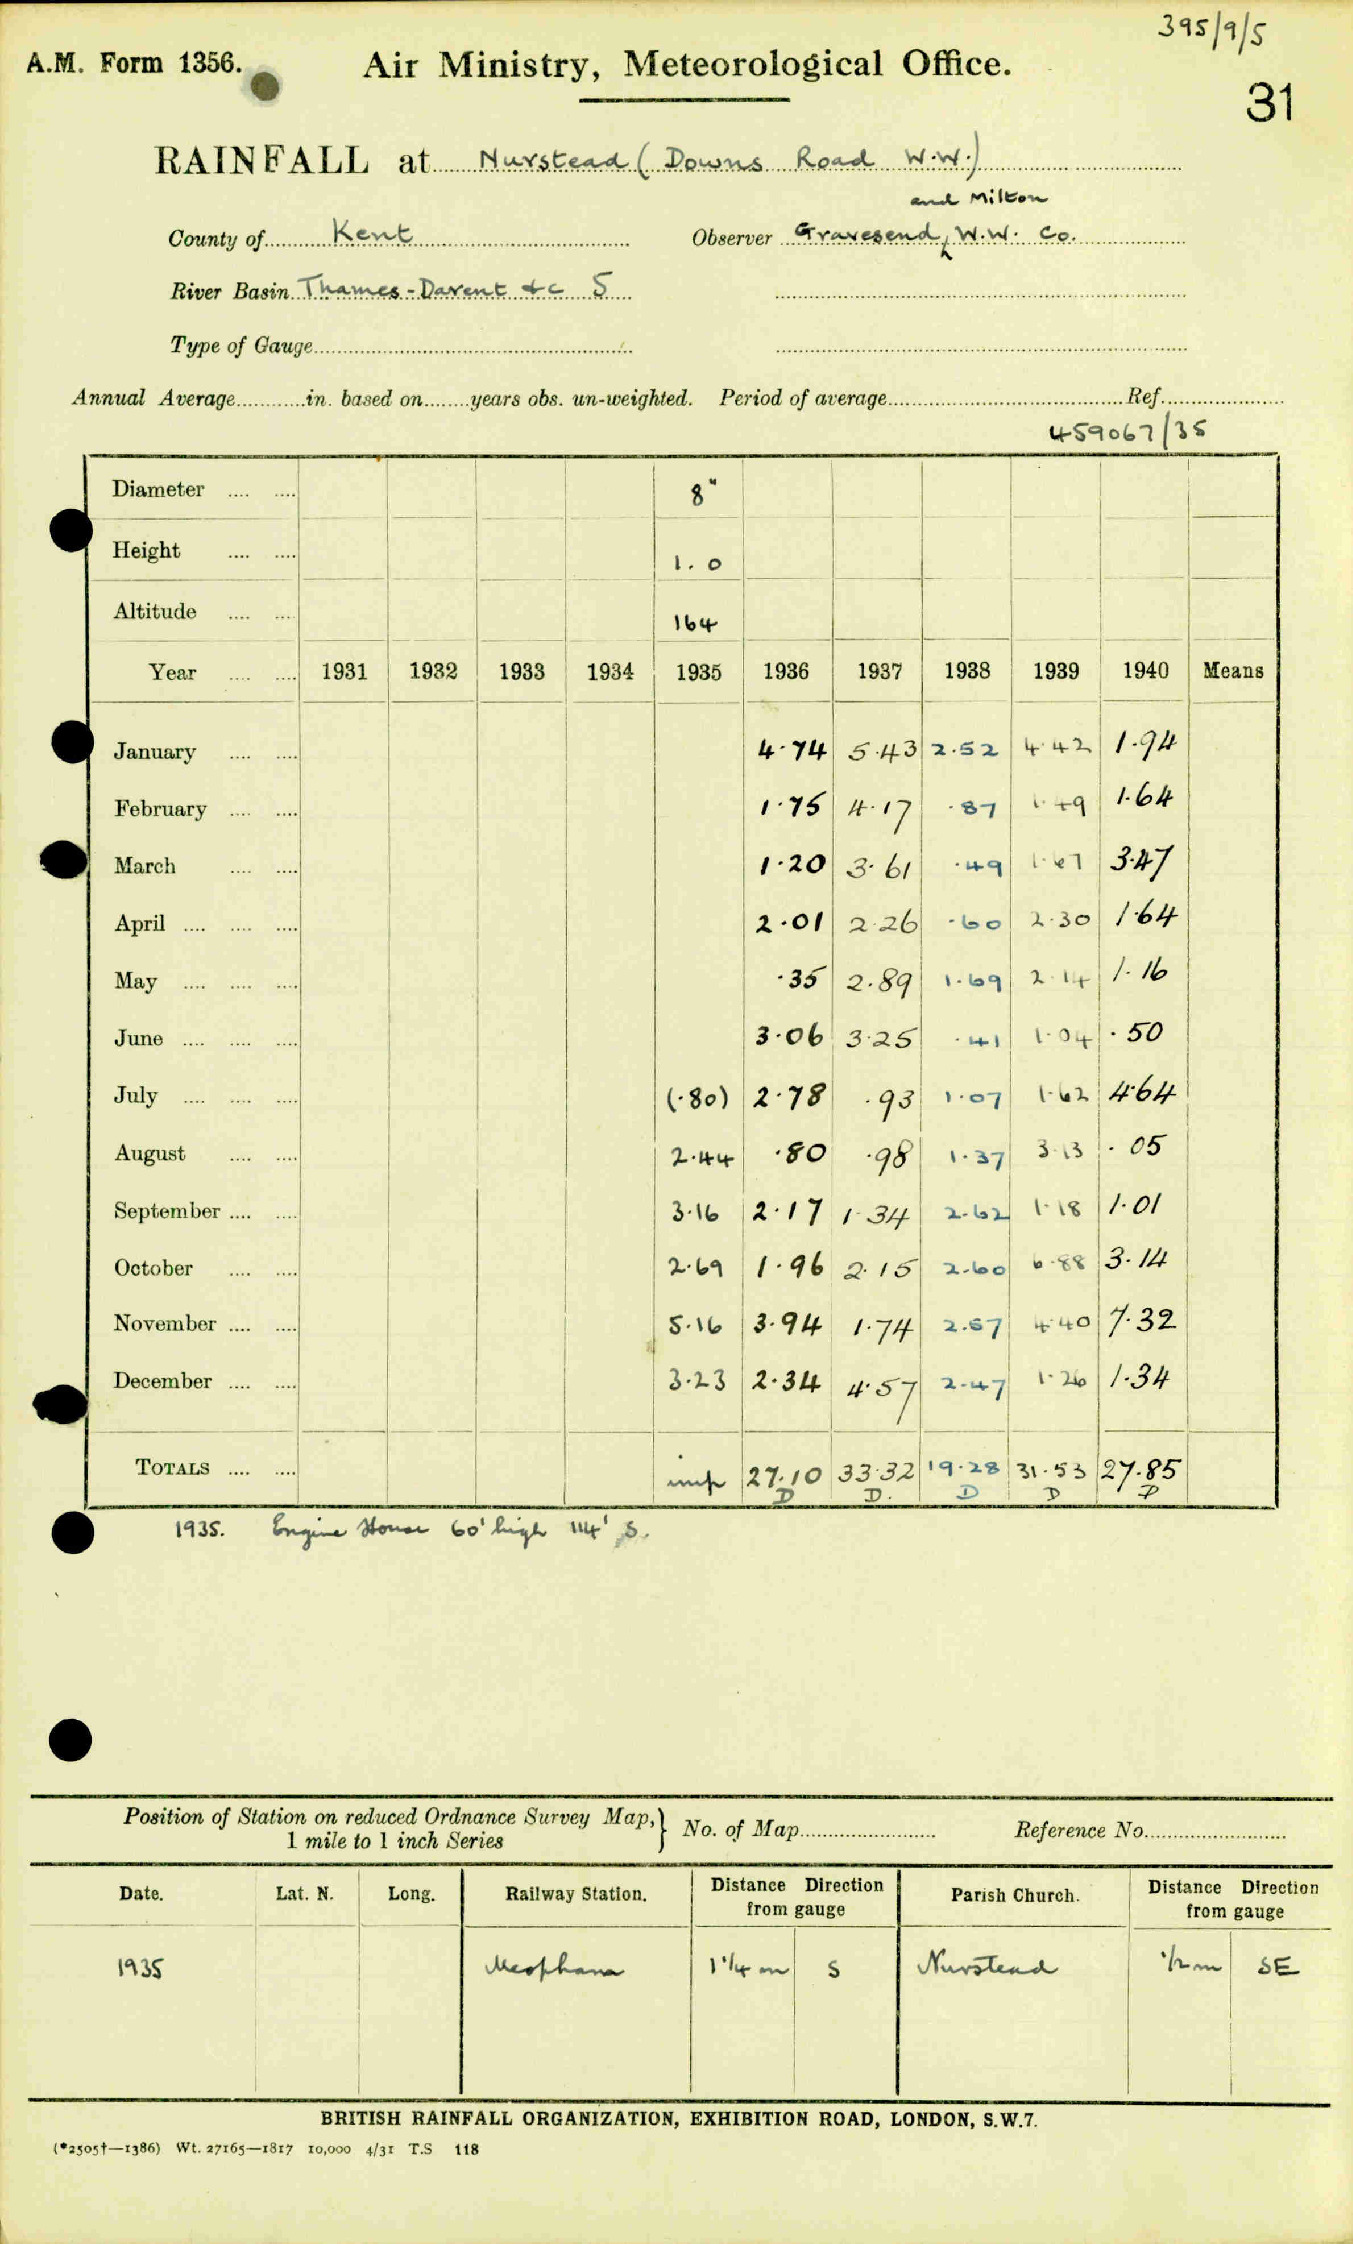 395/9/5
A.M. Form 1356. Air Ministry, Meteorological Office.
31
RAINFALL at Nurstead (Downs Road W.W.)
and Milton
County of Kent Observer Gravesend W.W. Co.
River Basin Thames-Darent &c 5
Type of Gauge
Annual Average in. based on years obs. un-weighted. Period of average Ref.
459067/35
Diameter .... .... 8"
Height .... .... 1.0
Altitude .... .... 164
Year .... .... 1931 1932 1933 1934 1935 1936 1937 1938 1939 1940 Means
January .... .... 4.74 5.43 2.52 4.42 1.94
February .... .... 1.75 4.17 .87 1.49 1.64
March .... .... 1.20 3.61 .49 1.67 3.47
April .... .... .... 2.01 2.26 .60 2.30 1.64
May .... .... .... .35 2.89 1.69 2.14 1.16
June .... .... .... 3.06 3.25 .41 1.04 .50
July .... .... .... (.80) 2.78 .93 1.07 1.62 4.64
August .... .... 2.44 .80 .98 1.37 3.13 .05
September .... .... 3.16 2.17 1.34 2.62 1.18 1.01
October .... .... 2.69 1.96 2.15 2.60 6.88 3.14
November .... .... 5.16 3.94 1.74 2.57 4.40 7.32
December .... .... 3.23 2.34 4.57 2.47 1.26 1.34
TOTALS .... .... imp 27.10 33.32 19.28 31.53 27.85
D D. D D D
1935. Engine House 60' high 114' S.
Position of Station on reduced Ordnance Survey Map, } No. of Map Reference No.
1 mile to 1 inch Series
Date. Lat. N. Long. Railway Station. Distance Direction from gauge Parish Church. Distance Direction from gauge
1935 Meopham 1 1/4 m S Nurstead 1/2 m SE
BRITISH RAINFALL ORGANIZATION, EXHIBITION ROAD, LONDON, S.W.7.
(*2505†—1386) Wt. 27165—1817 10,000 4/31 T.S 118